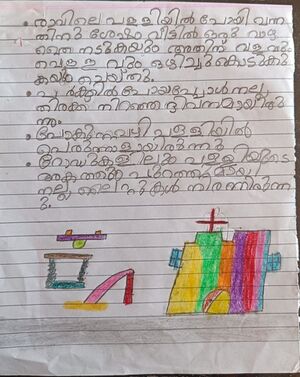 • രാവിലെ പള്ളിയിൽ പോയി വന്ന
തിനു ശേഷം വീട്ടിൽ ഒരു വാഴ
തൈ നടുകയും അതിന് വളവും
വെള്ളവും ഒഴിച്ചുകൊടുക്കു
കയും ചെയ്തു.
• പാർക്കിൽ പോയപ്പോൾ നല്ല
തിരക്ക് നിറഞ്ഞ ദിവസമായിരു
ന്നു.
• പോകുന്നവഴി പള്ളിയിൽ
പെരുന്നാളായിരുന്നു
• റോഡുകളിലും പള്ളിയുടെ
അകത്തും പുറത്തുമായി
നല്ല ലൈറ്റുകൾ നിരന്നിരുന്നു